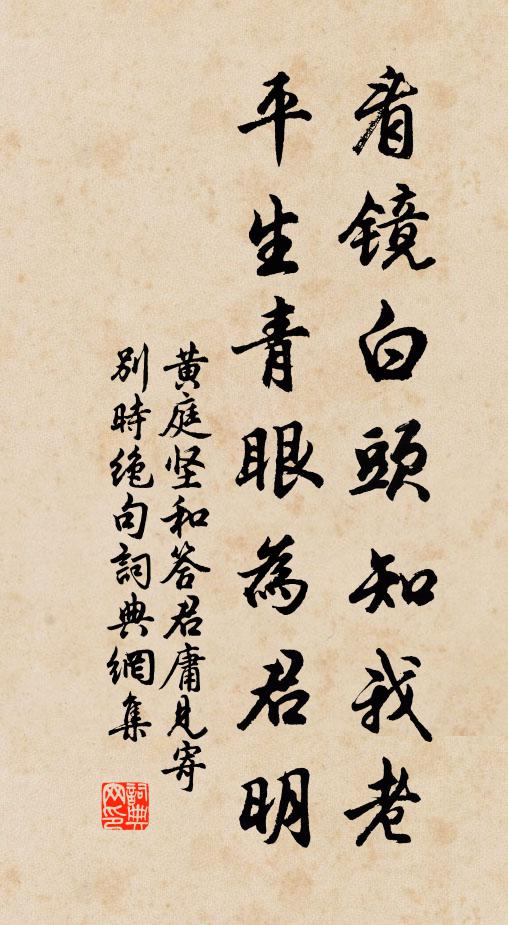 看镜白頭知我老
平生青眼為君明
黄庭坚和答君庸見寄
别時绝句詞典網集
詞典网印